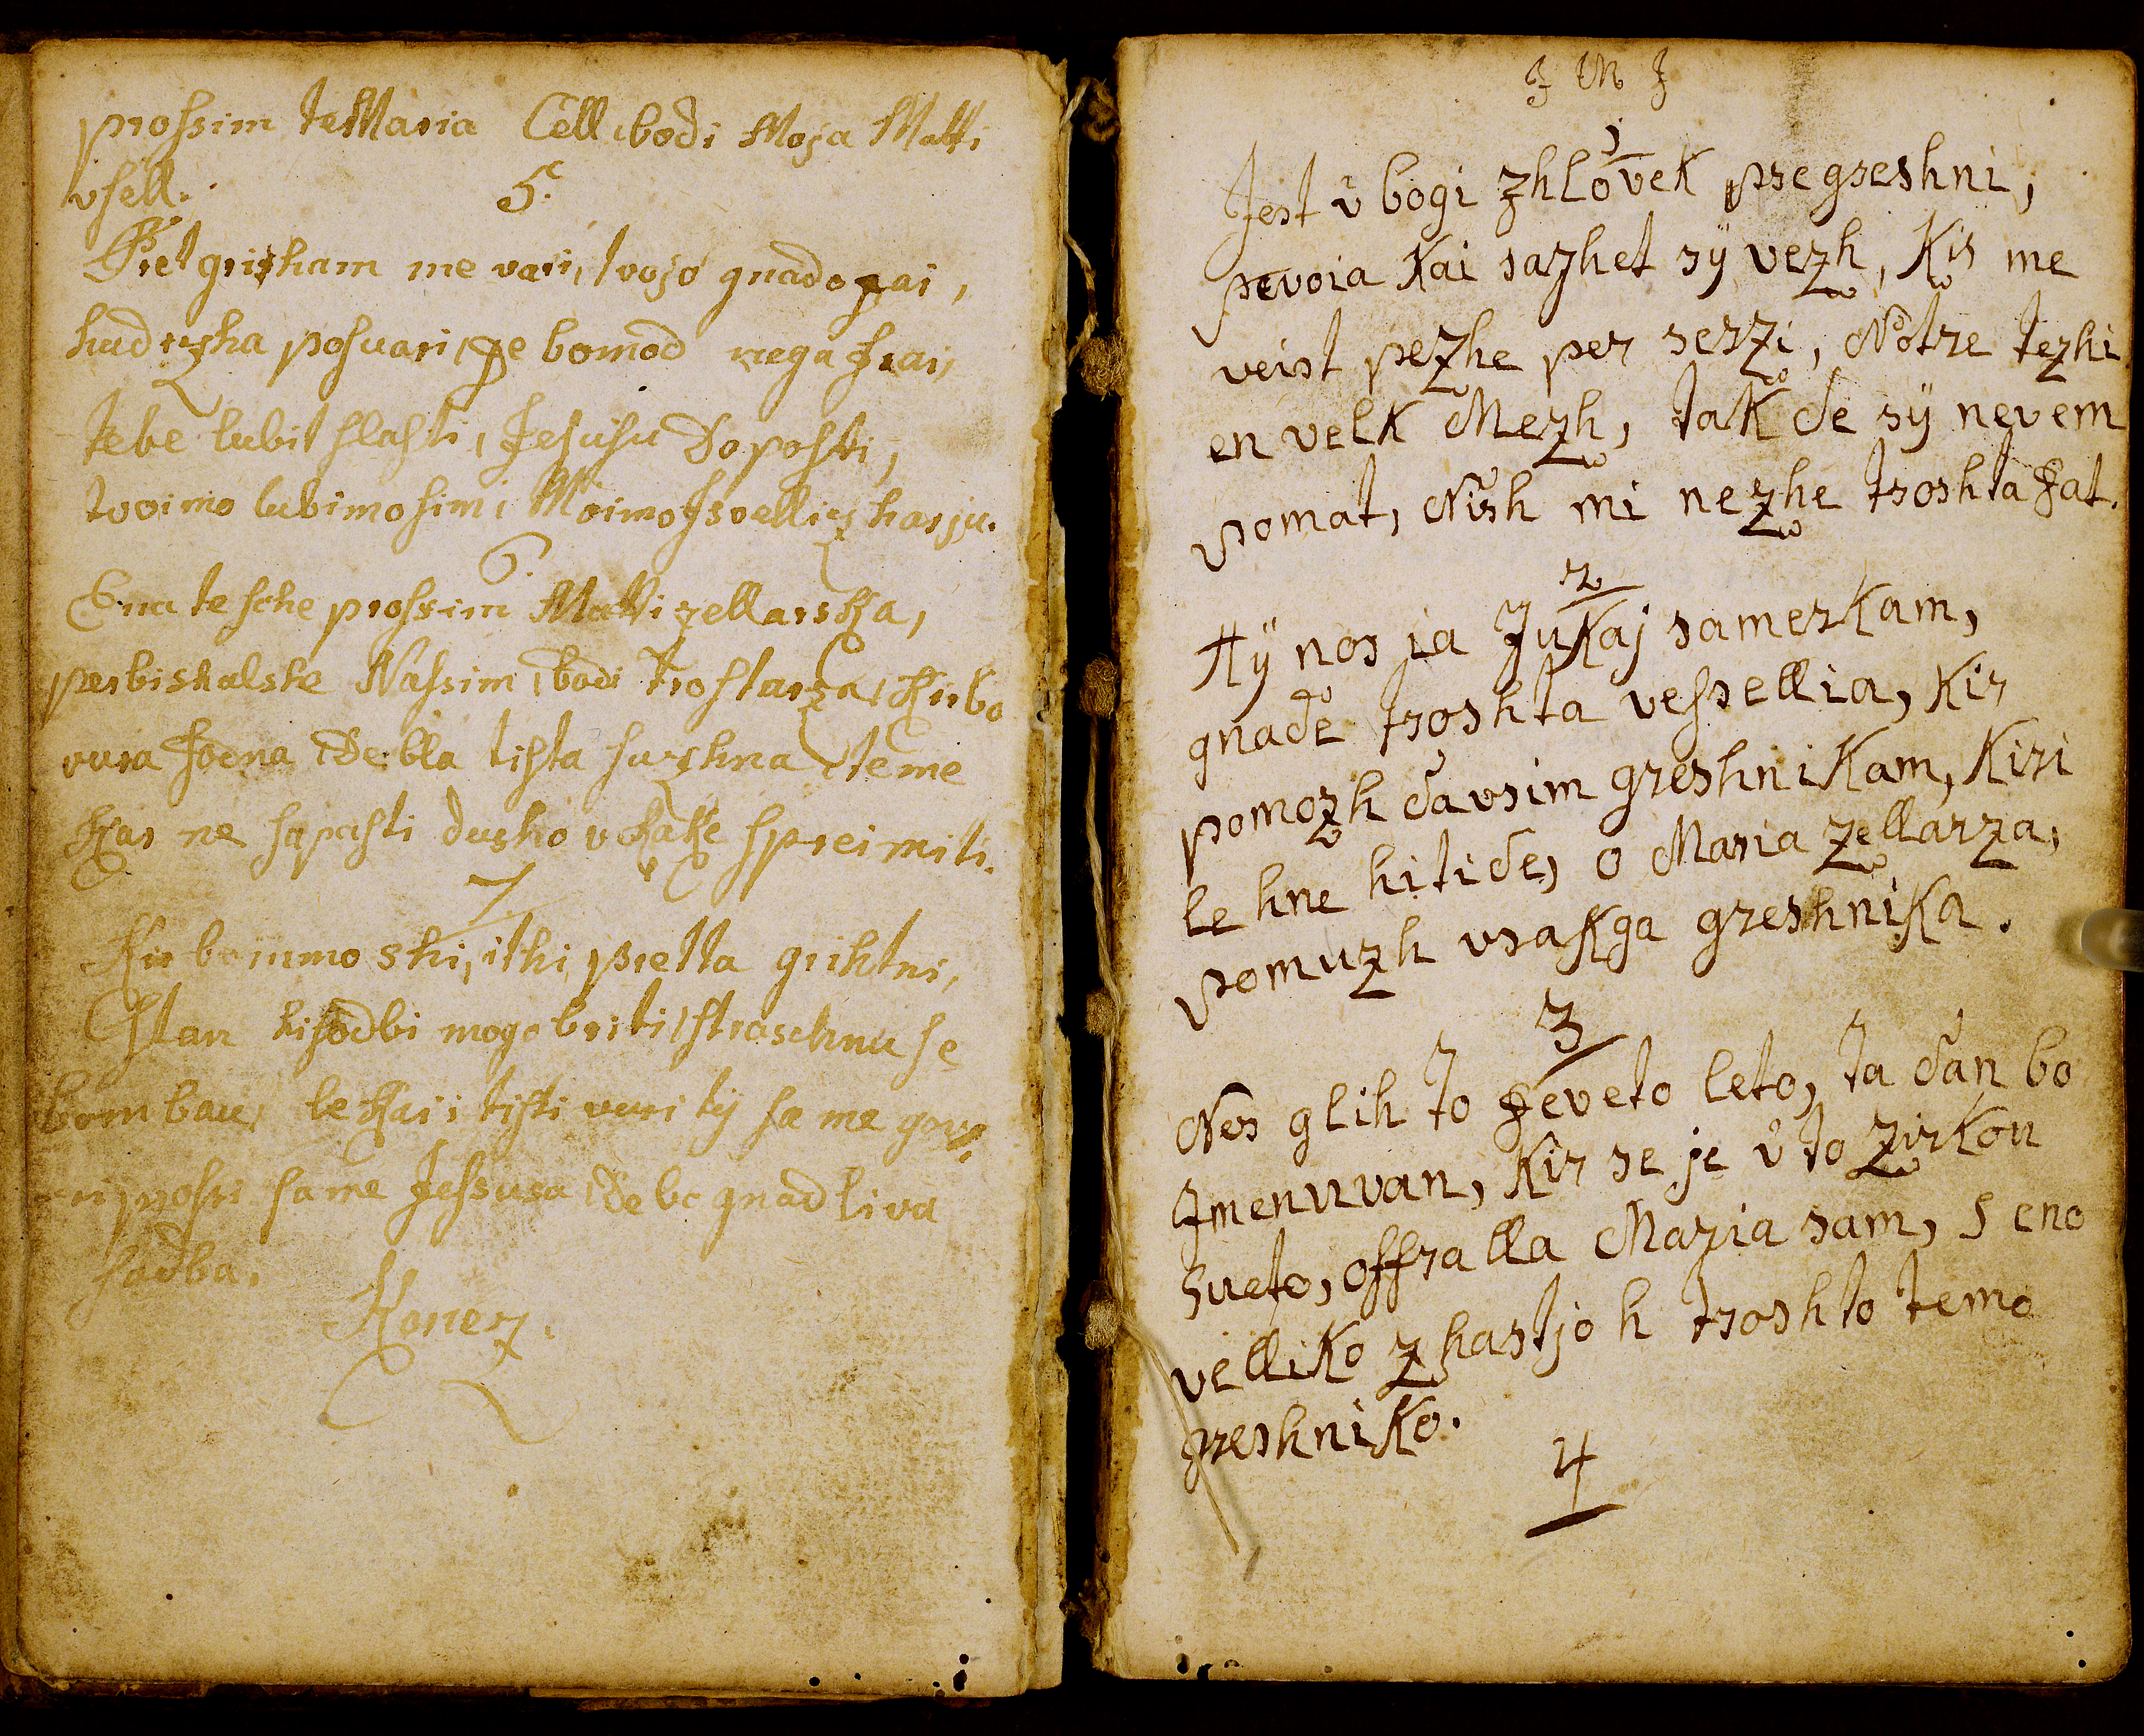 prossim te Maria Cell, bodi Moja Matti
vsell.
5.
Pret grisham me vari, tvojo gnado gai,
hudizha posvari, ge bomod nega frai,
tebe lubit slasti, Jesusu Doposti,
tvoimo lubimo simi Moimo Isvellizharju.
6
Ena te sche prossim Matti zellarska,
perbishalshe Nassim, bodi Troshtarza, Kirbo
vura sodna, De bla tista surzhna, te me
kar ne sapasti dusho v kake spreimiti.
7
Kir bommo shi, ithi pretta grihtni,
Stan kisodbi mogo briti, straschnu se
bom bau, le kai i tisti vuri ty sa me gov
ri, prossi sa me Jessusa, de bo gnadliva
sodba.
Konez.
J M J
1
Jest v bogi zhlovek pregreshni,
pevoia Kai sazhet sÿ vezh, Kir me
veist pezhe per serzi, Notre tezhi
en velk Mezh, tak de sÿ nevem
pomat, Nish mi nezhe troshta gat.
2
Hÿ nos ja Jukaj samerkam,
gnade troshta vessellia, Kir
pomozh davsim greshnikam, Kiri
le hne hitide, o Maria zellarza,
pomuzh vsakga greshnika.
3
Nes glih to deveto leto, ta dan bo
Imenuvan, Kir se je v to zirkou
sveto, offralla Maria sam, s eno
velliko zhastjo h troshto temo
greshniko.
4